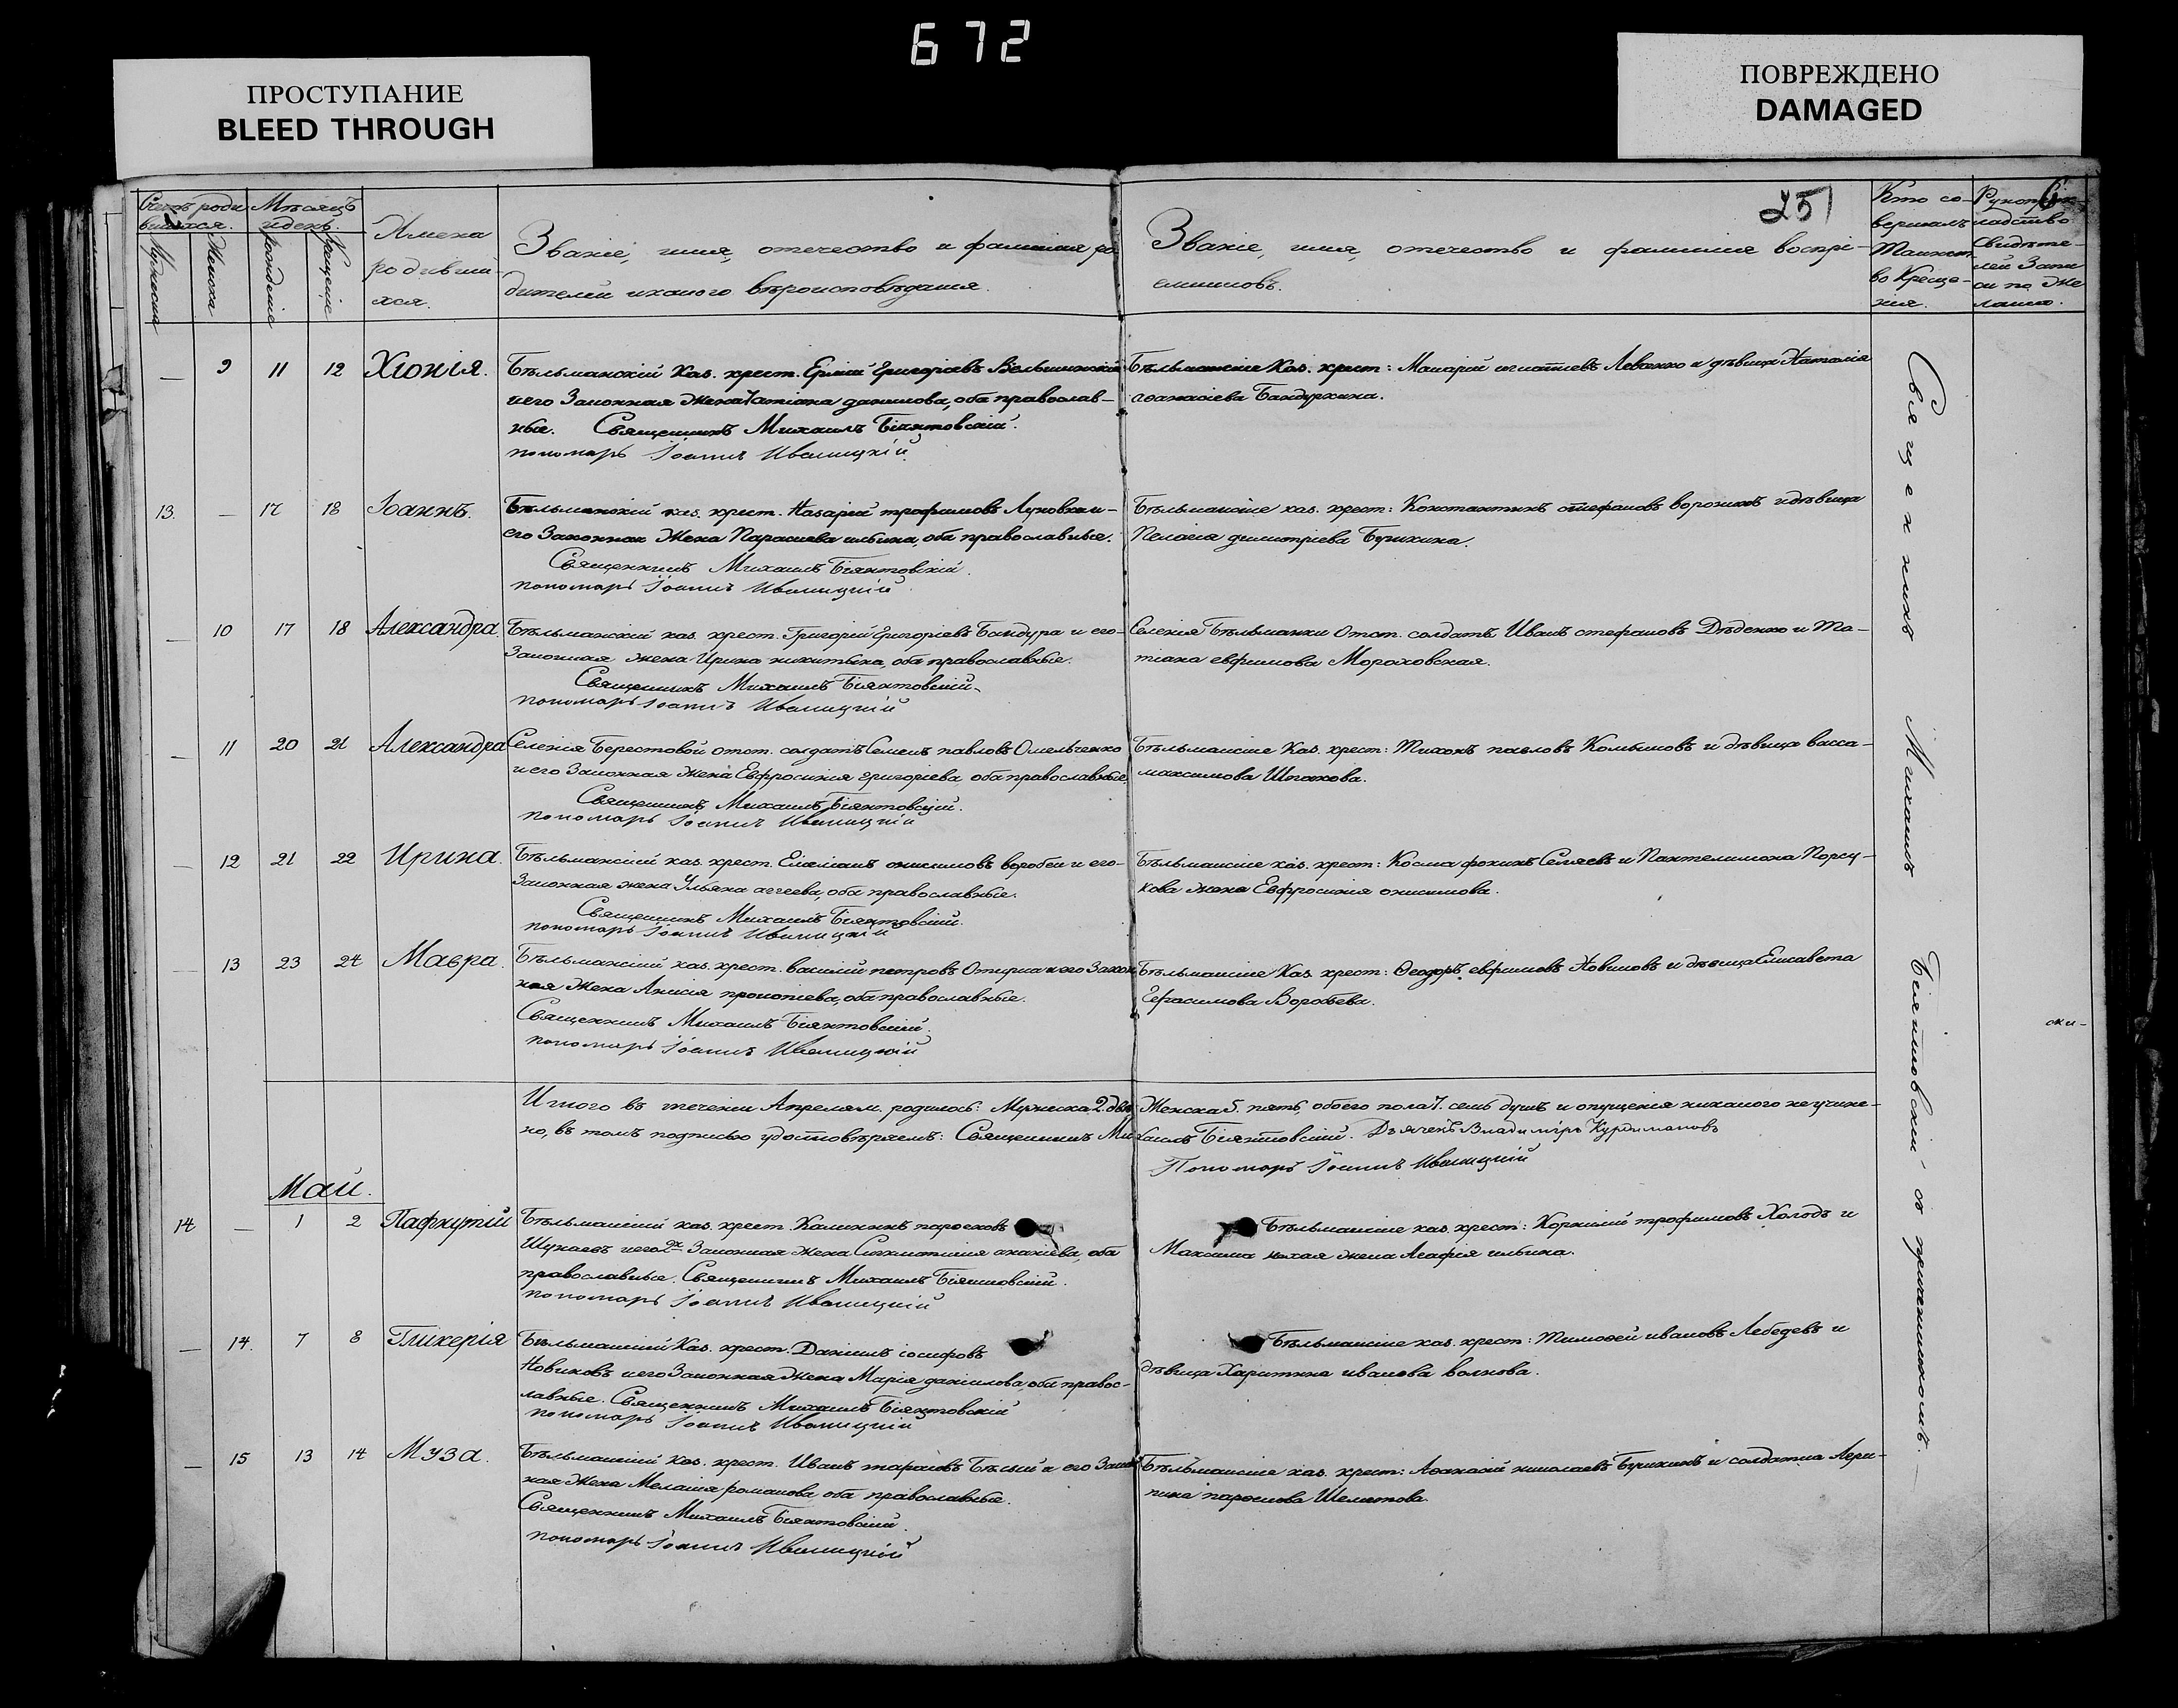 672
ПРОСТУПАНИЕ
BLEED THROUGH
ПОВРЕЖДЕНО
DAMAGED
251
6
Счетъ роди-
вшихся.
Мѣсяцъ
и день.
Мужеска
Женска
рожденіе
крещеніе
Имена
родивши-
хся.
Званіе, имя, отечество и фамилія ро-
дителей и какого вѣроисповѣданія.
Званіе, имя, отечество и фамилія воспрі-
емниковъ.
Кто со-
вершалъ
Таинст
во Креще-
нія.
Рукопри-
кладство
Свидѣте-
лей Запи
си по же
ланію.
— 9 11 12 Хіонія.
Бѣльманскій Каз. крест. Григоріевъ
и его Законная Жена Татіана данилова, оба православ-
ные. Священникъ Михаилъ Біянтовскій.
пономарь Іоаннъ Иваницкій
Бѣльманскіе Каз. крест: Макарій игнатіевъ Леванко и дѣвица Наталія
аѳанасіева Бандуркина.
13. — 17 18 Іоаннъ.
Бѣльманскій каз. крест. Назарій трофимовъ и
его Законная Жена Параскева ильина, оба православные.
Священникъ Михаилъ Біянтовскій.
пономарь Іоаннъ Иваницкій
Бѣльманскіе каз. крест: Константинъ стефановъ и дѣвица
Пелагія димитріева Бурихина.
— 10 17 18 Александра.
Бѣльманскій каз. крест. Григорій Григоріевъ Бандура и его
Законная жена Ирина никитина, оба православные.
Священникъ Михаилъ Біянтовскій.
пономарь Іоаннъ Иваницкій
Селенія Бѣльманки Отст. солдатъ Иванъ стефановъ Дѣденко и Та-
тіана евфимова Мораховская.
— 11 20 21 Александра
Селенія Берестовой отст. солдатъ Семенъ павловъ Омельченко
и его Законная Жена Евфросинія григоріева, оба православные.
Священникъ Михаилъ Біянтовскій.
пономарь Іоаннъ Иваницкій
Бѣльманскіе Каз. крест: Тихонъ павловъ и дѣвица васса
максимова Шпакова.
— 12 21 22 Ирина.
Бѣльманскій каз. крест. онисимовъ воробей и его
Законная жена Ульяна аггеева, оба православные.
Священникъ Михаилъ Біянтовскій.
пономарь Іоаннъ Иваницкій
Бѣльманскіе каз. крест: Косма фокинъ и Пантелимона
жена Евфросинія онисимова.
— 13 23 24 Мавра.
Бѣльманскій каз. крест. василій петровъ и его Закон
ная Жена Анисія прокопіева, оба православные.
Священникъ Михаилъ Біянтовскій.
пономарь Іоаннъ Иваницкій
Бѣльманскіе Каз. крест: Ѳеодоръ евфимовъ Новиковъ и дѣвица Елисавета
Герасимова Воробьева.
Итого въ теченіи Апреля м. родилось: Мужеска 2. два, Женска 5. пять, обоего пола 7. семь душъ и опущенія никакого неучине-
но, въ томъ подписью удостовѣряемъ: Священникъ Михаилъ Біянтовскій. Дьячекъ Владиміръ Курдимановъ
Пономарь Іоаннъ Иваницкій
Май.
14 — 1 2 Пафнутій
Бѣльманскій каз. крест. Калинникъ
и его 2й Законная Жена ананіева, оба
православные. Священникъ Михаилъ Біянтовскій.
пономарь Іоаннъ Иваницкій
Бѣльманскіе каз. крест: Корнилій трофимовъ Холодъ и
Максима жена Агафія ильина.
— 14. 7 8 Гликерія
Бѣльманскій Каз. крест. Даніилъ іосифовъ
Новиковъ и его Законная Жена Марія даніилова, оба правос-
лавные. Священникъ Михаилъ Біянтовскій
пономарь Іоаннъ Иваницкій
Бѣльманскіе каз. крест: Тимоѳей ивановъ Лебедевъ и
дѣвица Харитина иванова волкова.
— 15 13 14 Муза.
Бѣльманскій каз. крест. Иванъ тарасовъ Бѣлый и его Закон
ная Жена Меланія романова, оба православные.
Священникъ Михаилъ Біянтовскій.
пономарь Іоаннъ Иваницкій
Бѣльманскіе каз. крест: Аѳанасій николаевъ Бурихинъ и солдатка Агри-
пина
Священникъ Михаилъ Біянтовскій съ причетникомъ.